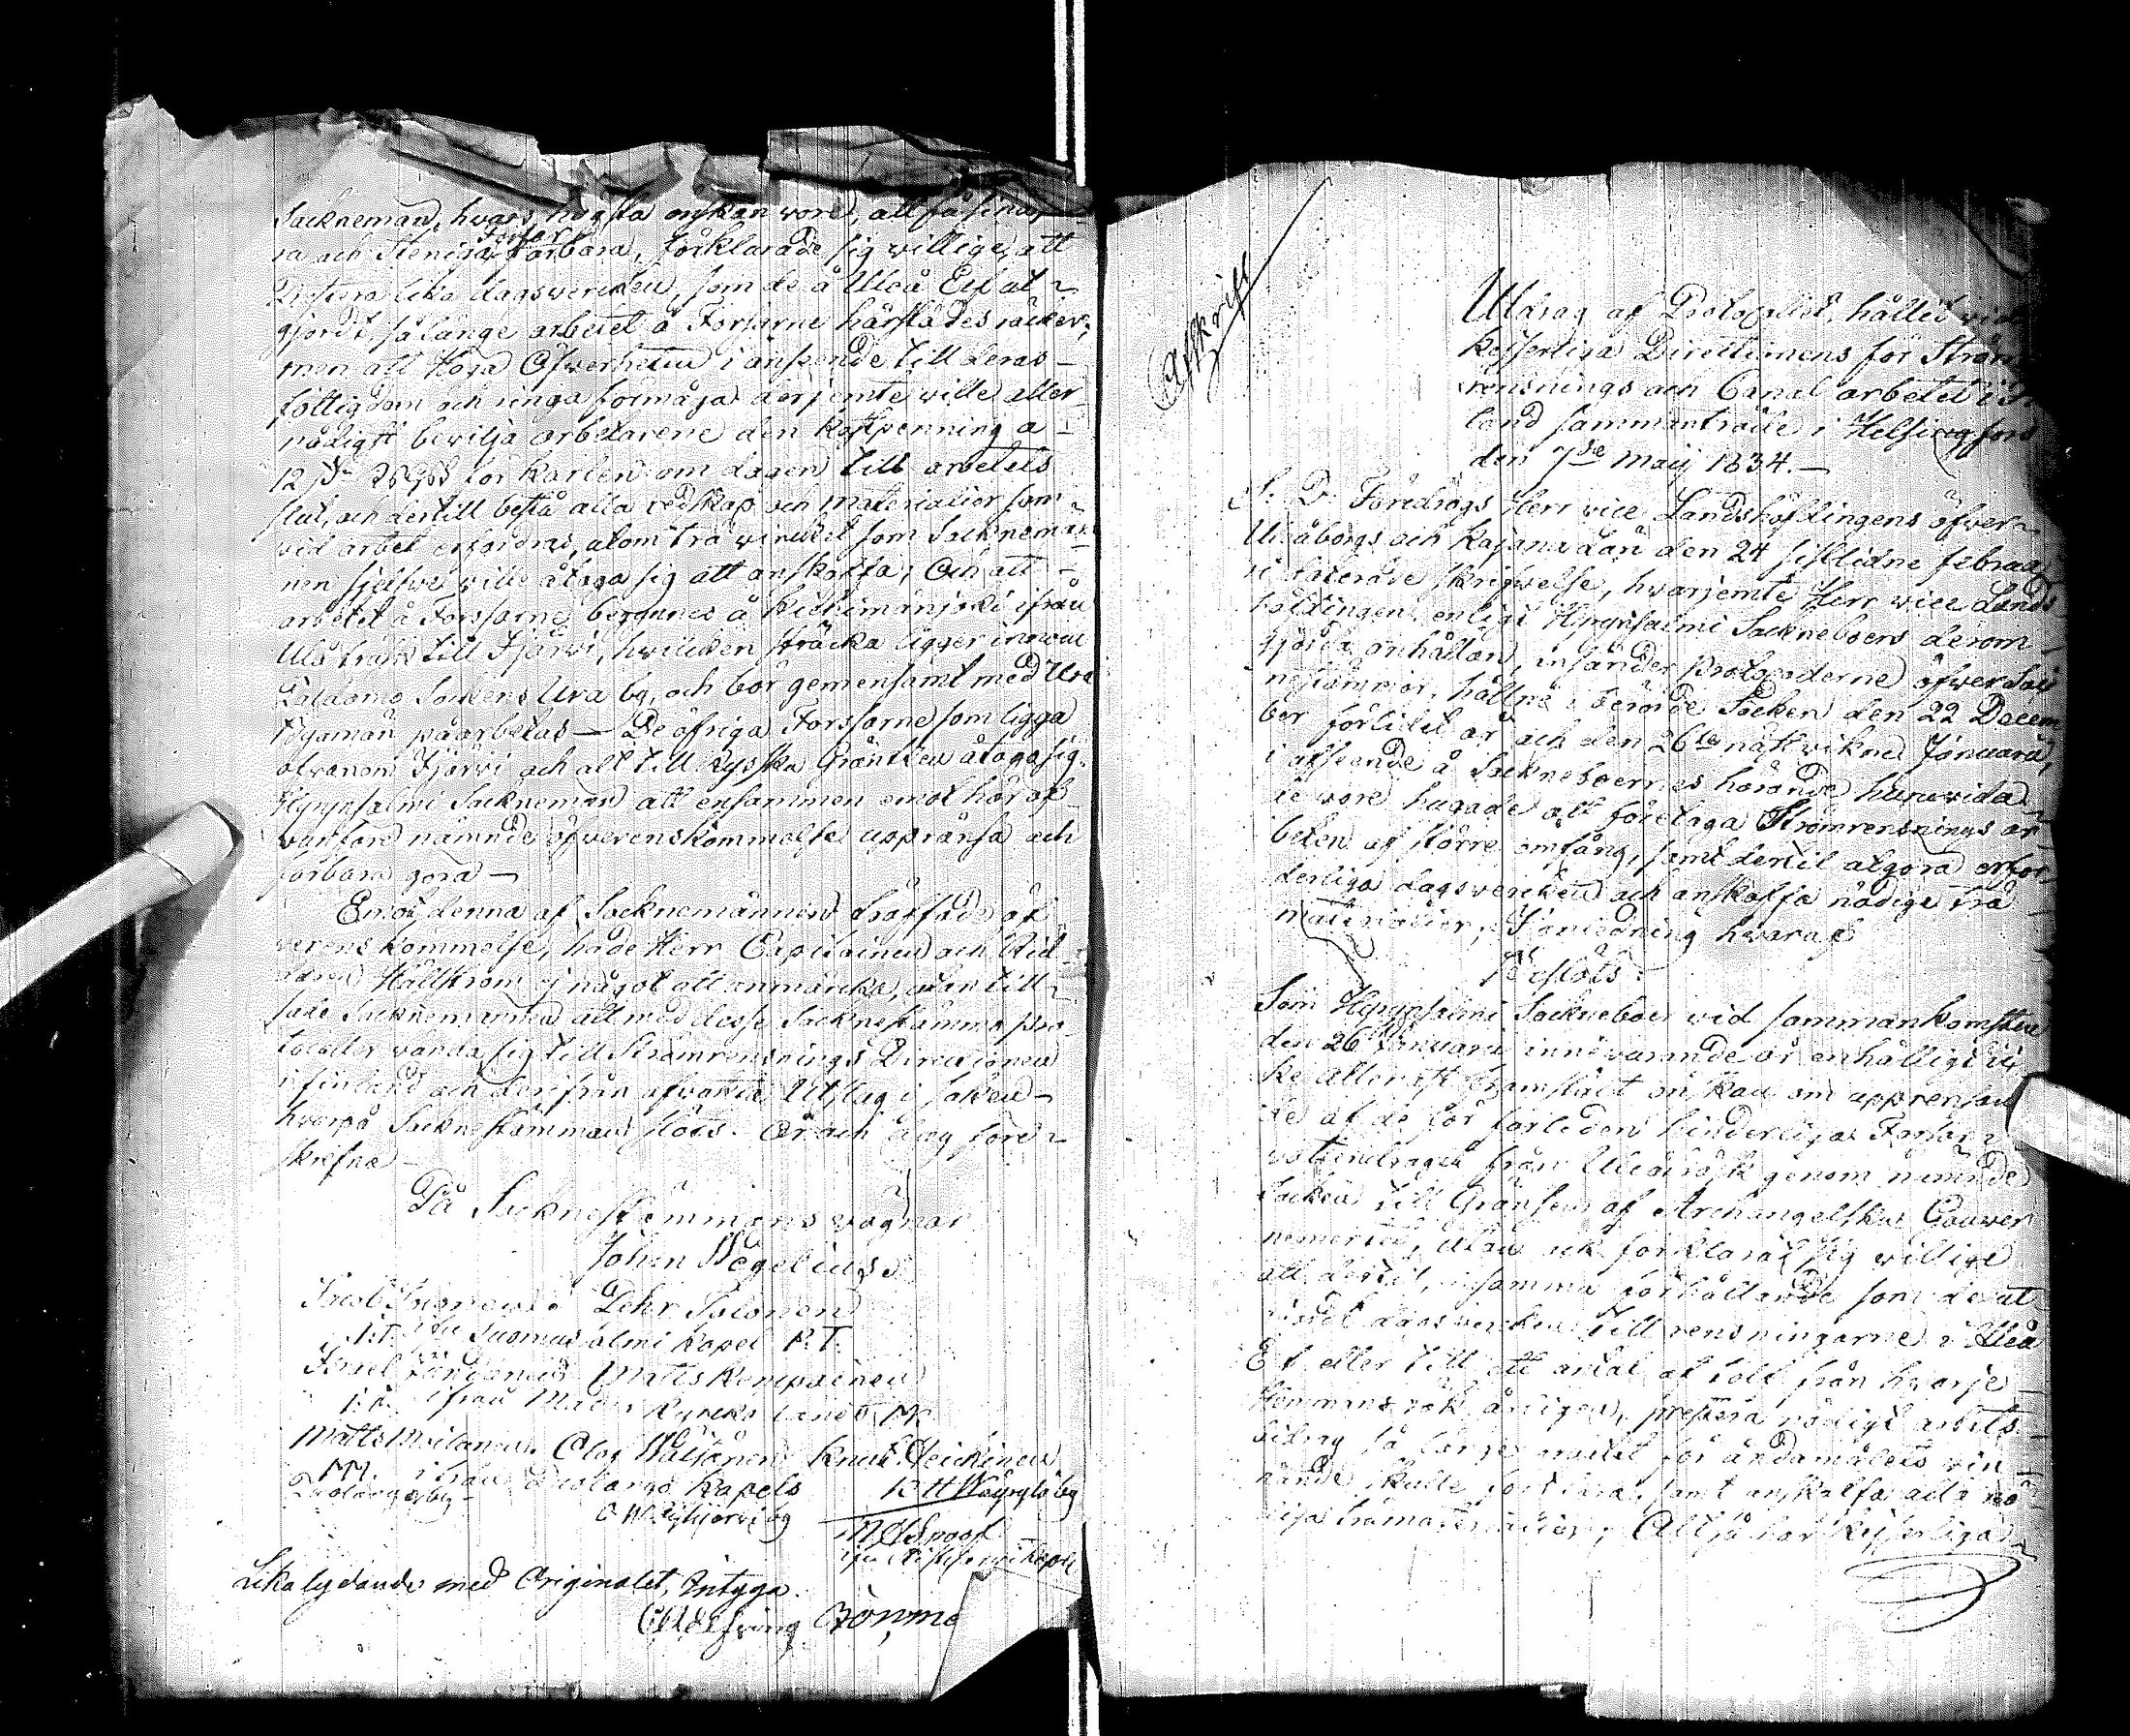 Sockneman, hvars högsta önskan vore, att få sina
ra och Steniga Forsar farbara, förklarade sig willige, att
prestera lika dagsvercken, som de å Uleå Elf ut-
gjordt, så länge arbetet å Forsarne härstädes räcker;
men att Höga Öfwerheten i anseende till deras
fattigdom och ringa förmåga derjemte wille aller-
nådigst bevilja arbetarene den kostpenning a
12 s. för karlen om dagen till arbetets
slut, och dertill bestå alla redskap och materialier som
vid arbetet erfordras, utom trä virke som Socknemän-
nen sjelfve ville åtaga sig att anskaffa; Och att
arbetet å Forsarne begynnes å Kiehimänjoki ifrån
Ulå träsk till Ijärwi, hvilcken sträcka ligger inom
Paldamo Sockens Ura by, och bör gemensamt med Ura
byamän påarbetas — De öfriga Forsarne som ligga
ofvanom Ijärvi och allt till Ryska Gränsen åtogo sig
Hyrynsalmi Sockneman att ensammen emot här of-
vanföre nämnde öfverenskommelse upprånsa och
farbara göra —
Emot denna af Socknemännen träffade öf-
verenskommelse, hade Herr Capitainen och Rid-
daren Hällström ej något att anmärcka, utan till-
sade Socknemännen att med desse Sockne stämmo pro-
tocoller vända sig till Strömrensnings Directionen
i Finland och derifrån afvakta Utslag i saken —
hvarpå Sockne stämman slöts. År och dag före-
skrefne —
På Sockne stämmans vägnar
Johan Wegelius
Pehr Tolonen
Suomus salmi kapel P.T.
Israel Matts Kempainen
ifrån
Matts Moilanen Olof Väisänen Knut Heickinen
ifrån kapels
Lika lydande med Originalet, Intyga.
Afskrift
Utdrag af Protocollet, hållet vid
Kejserliga Directionens för Ström
rensnings och Canal arbetet i
land sammanträde i Helsingfors
den 7de Maij 1834. —
S. D. Föredrogs Herr vice Landshöfdingens öfver
Uleåborgs och Kajana Län den 24 sistledne februa
rii daterade skrifwelse, hvarjemte Herr vice Lands
höfdingen enligt Hyrynsalmi Sockneboers derom
gjorda anhållan, insänder protocollerne öfwer Sock
nestämmor, hållne i berörde Socken den 22 Decem
ber förlidet år och den 26te nästvikne Januarii,
i afseende å Sockneboernes hörande huruvida
de vore hugade att företaga Strömrensnings ar-
beten af större omfång, samt dertil utgöra erfor-
derliga dagsvercken och anskaffa nödige trä
materialier; I anledning hvaraf
Beslöts:
Som Hyrynsalmi Sockneboer vid sammankomsten
den 26 Januarii innevarande år enhälligt icke
allenast framstält önskan om upprensan
de af de för farleden hinderliga Forsar i
vattendragen från Uleåträsk genom nämnde
Socken till Gränsen af Archangelska Gouver
nementet, utan ock förklarat sig villige
att dertil, i samma förhållande som de ut-
gjordt dagsvercken till rensningarne i Uleå
Elf eller till ett antal af tolf från hvarje
Hemmans rök årligen, prestera nödigt arbets
bidrag så länge arbetet för ändamålets vin
nande skulle fortfara, samt anskaffa alla nö
diga trämaterialier; Alltså har Kejserliga